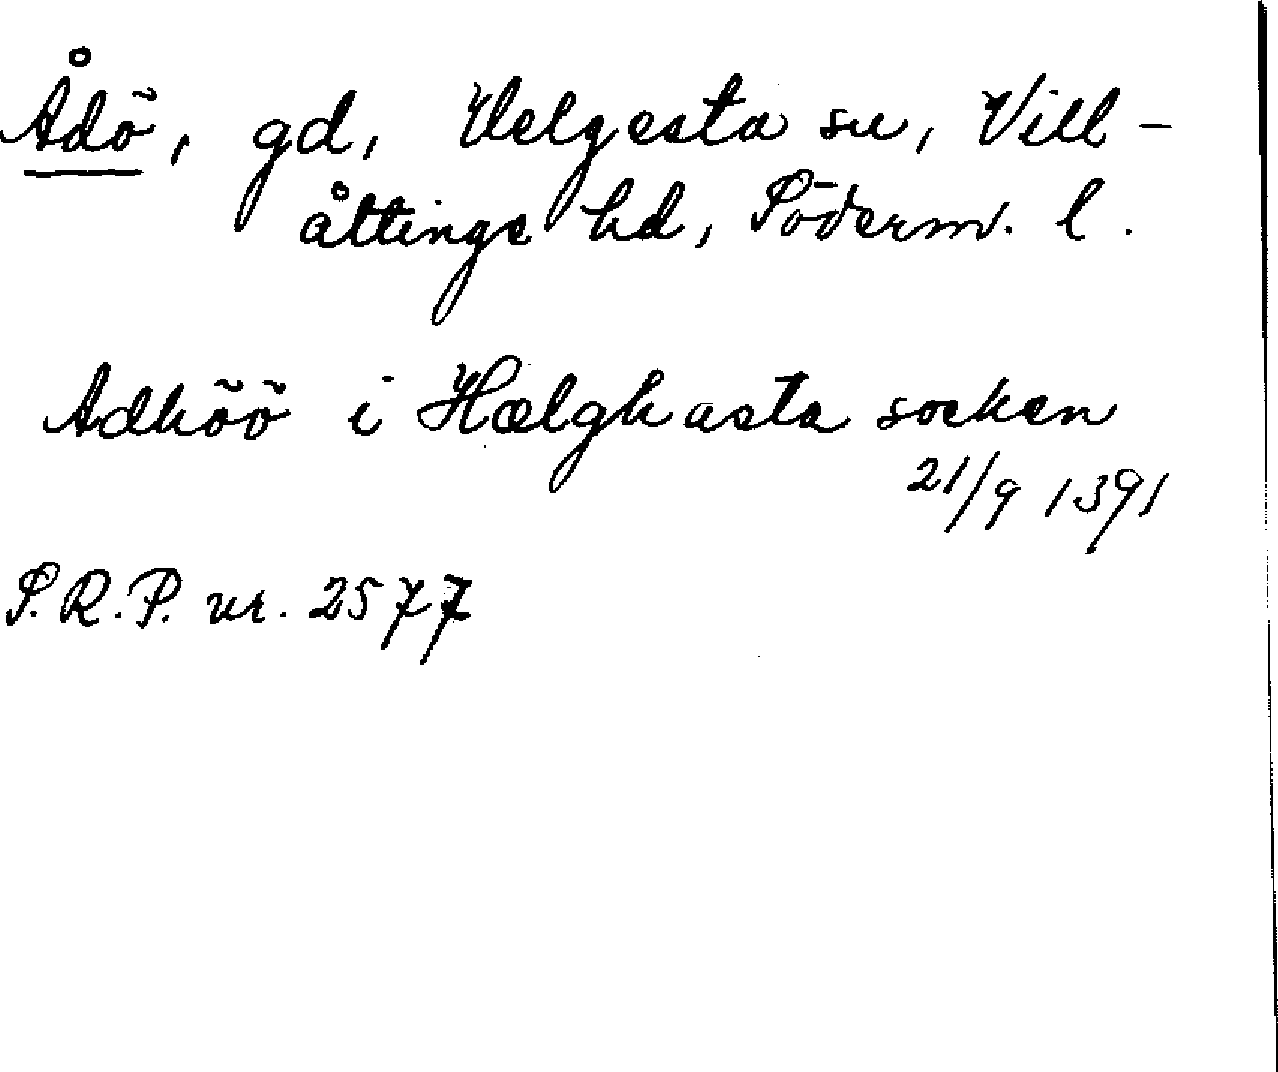 Ådö, gd, Helgesta sn, Vill-
åttinge hd, Söderm. l.
Adhöö i Hælghasta socken
21/9 1391
S.R.P. nr. 2577